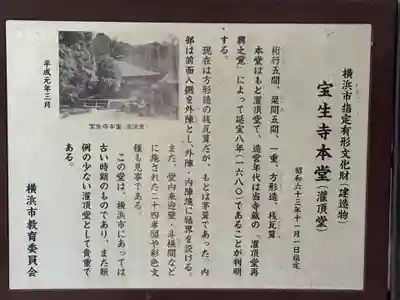 横浜市指定有形文化財(建造物)
宝生寺本堂(灌頂堂)
昭和六十三年十一月一日指定
桁行五間、梁間五間、一重、方形造、桟瓦葺
本堂はもと灌頂堂で、造営年代は当寺蔵の「灌頂堂再
興之覚」によって延宝八年(一六八〇)であることが判明
する。
現在は方形造の桟瓦葺だが、もとは茅葺であった。内
部は前面八畳を外陣とし、外陣・内陣境に結界を設ける。
また、堂内来迎壁・斗栱間など
に施された二十四孝図や彩色文
様も見事である。
この堂は、横浜市にあっては
古い時期のものであり、また類
例の少ない灌頂堂として貴重で
ある。
宝生寺本堂(灌頂堂)
平成元年三月
横浜市教育委員会